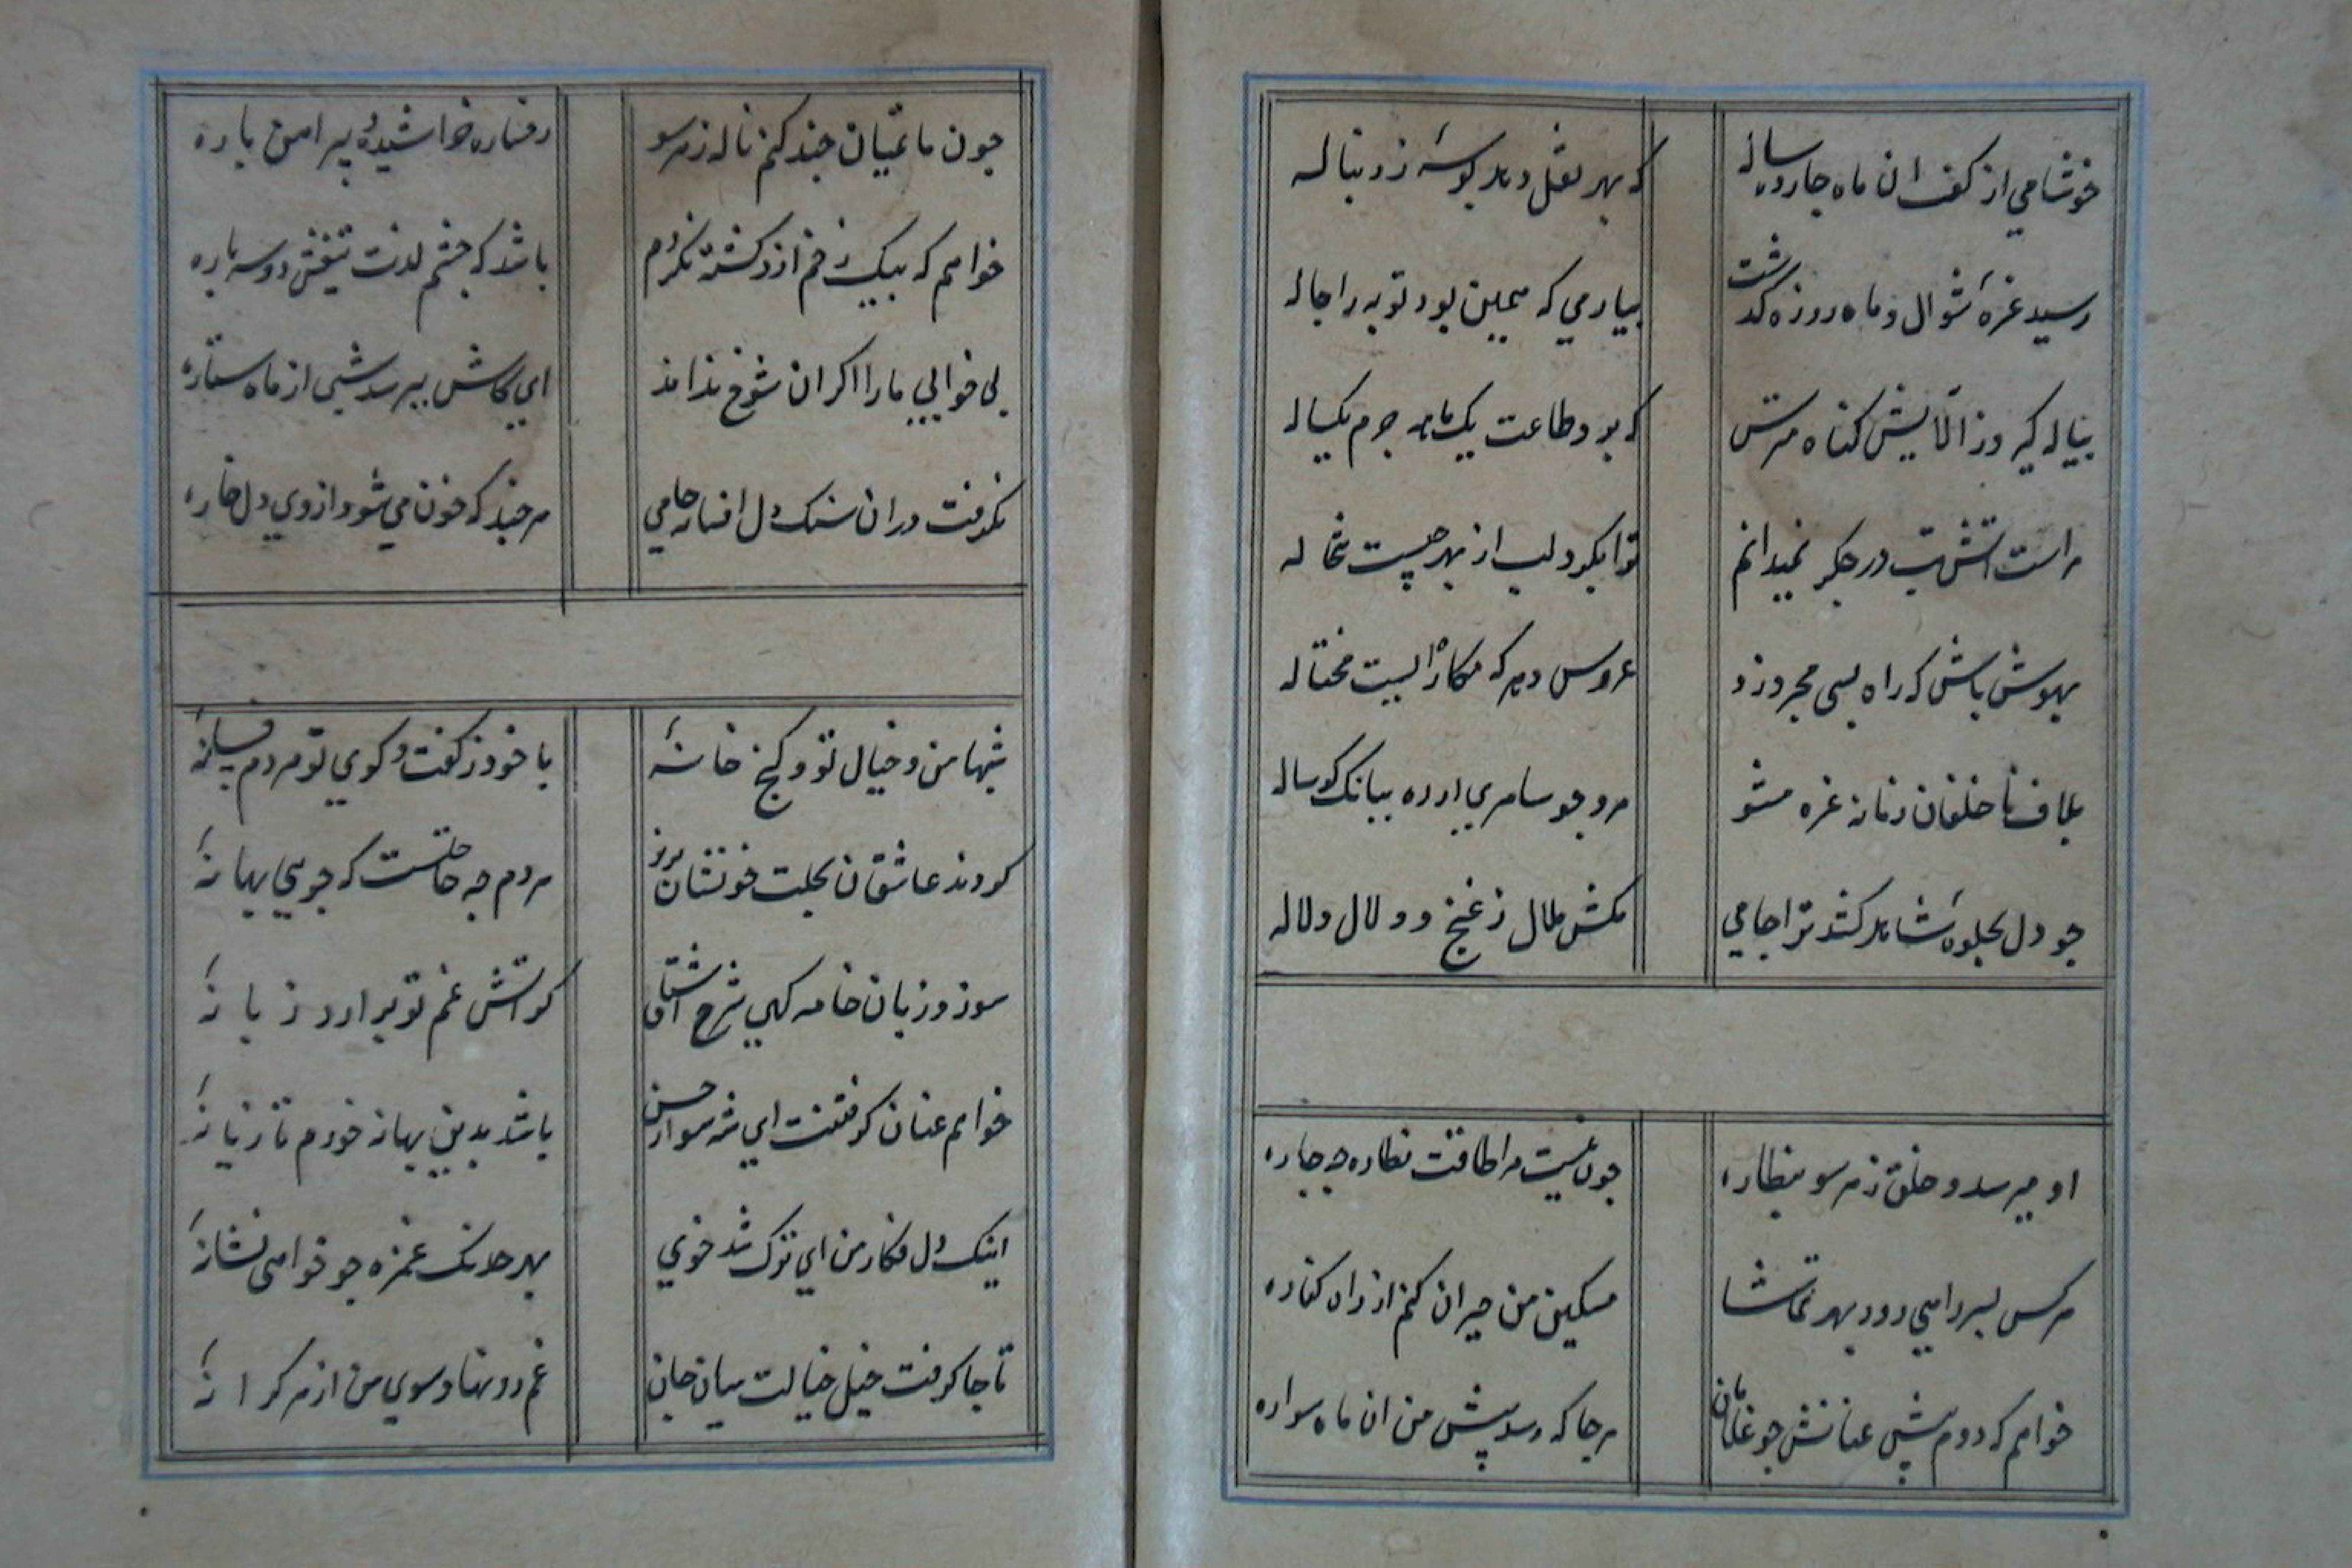 خوشا می از کف ان ماه چارده ساله که بهر نقل دهد بوسهٔ ز دنباله
رسید غرهٔ شوال و ماه روزه گذشت بیار می که همین بود توبه را حاله
پیاله گیر و ز الایش گناه مترس که بود طاعت یک ماهه جرم یکساله
مراست اتش تب در جگر نمیدانم ترا بگرد لب از بهر چیست تبخاله
بهوش باش که راه بسی مجرد زد عروس دهر که مکاره ایست محتاله
بلاف ناخلفان زمانه غره مشو مرو چو سامری از ره ببانگ گوساله
چو دل بجلوهٔ شاهد کشد ترا جامی مکش ملال ز غنج و دلال دلاله
او میرسد و خلق ز هر سو بنظاره چون نیست مرا طاقت نظاره چه چاره
هر کس بسر راهی رود بهر تماشا مسکین من حیران کنم از راه کناره
خواهم که دوم پیش عنانش چو غلامان هر جا که رسد پیش من ان ماه سواره
چون ماتمیان چند کنم ناله ز هر سو رخساره خراشیده و پیراهن پاره
خواهم که بیک زخم ازو کشته نگردم باشد که چشم لذت تیغش دو سه باره
بی خوابی ما را اگر ان شوخ نداند ای کاش بپرسد شبی از ماه ستاره
نگرفت دران سنگ دل افسانه جامی هر چند که خون می شود از وی دل خاره
شبها من و خیال تو و کنج خانهٔ با خود ز گفت و گوی تو هر دم فسانهٔ
کردند عاشقان بحلت خونشان بریز مردم چه حاجتست که جویی بهانهٔ
سوزد زبان خامه گهی شرح اشتیاق کز اتش غم تو برارد زبانهٔ
خواهم عنان گرفتنت ای شهسوار حسن باشد بدین بهانه خورم تازیانهٔ
اینک دل فکار من ای ترک تند خوی بهر خدنگ غمزه چو خواهی نشانهٔ
تا جا گرفت خیل خیالت میان جان غم رو نهاد سوی من از هر کرانهٔ